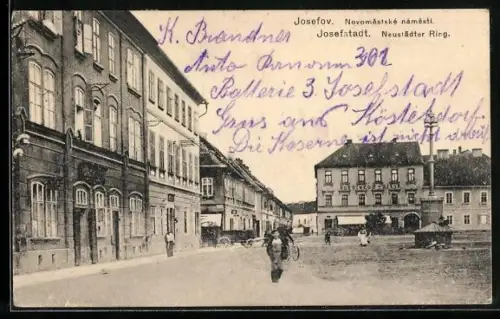 Josefov. Novoměstské náměstí.
Josefstadt. Neustädter Ring.
K. Brandner
Auto 301
Batterie 3. Josefstadt
Gruss aus
Die Kaserne ist nicht